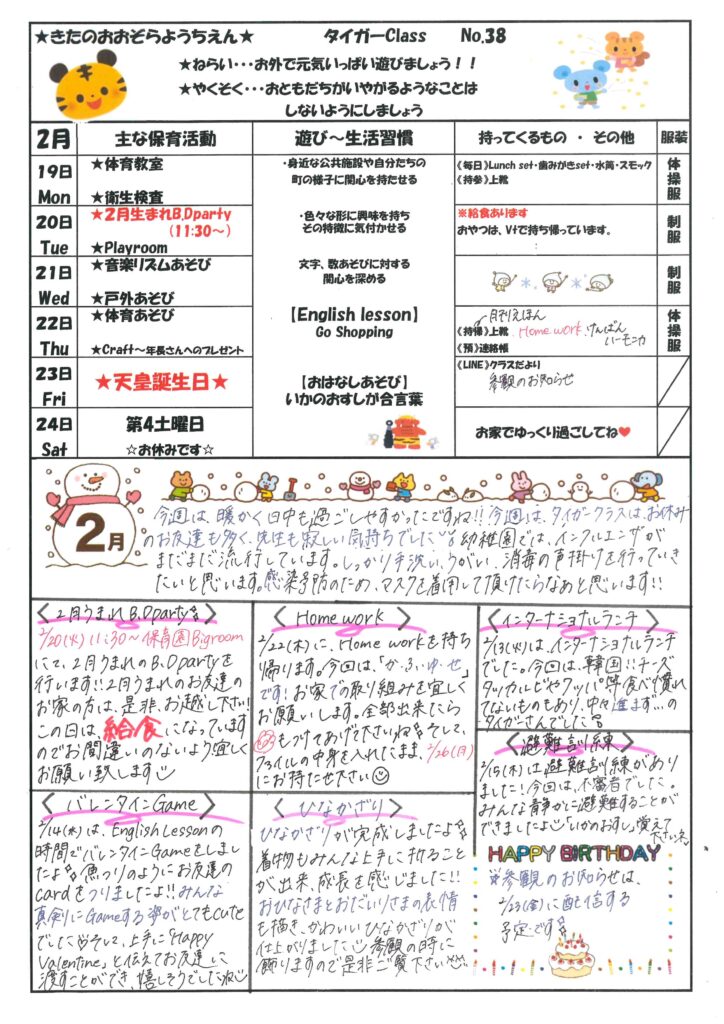 ★きたのおおぞらようちえん★ タイガーClass No.38
★ねらい・・・お外で元気いっぱい遊びましょう!!
★やくそく・・・おともだちがいやがるようなことは
しないようにしましょう
2月 主な保育活動 遊び〜生活習慣 持ってくるもの ・ その他 服装
19日 Mon
★体育教室
★衛生検査
・身近な公共施設や自分たちの
町の様子に関心を持たせる
《毎日》Lunch set・歯みがきset・水筒・スモック
《持参》上靴
体操服
20日 Tue
★2月生まれB,Dparty
(11:30〜)
★Playroom
・色々な形に興味を持ち
その特徴に気付かせる
※給食あります
おやつは、Vtで持ち帰っています。
制服
21日 Wed
★音楽リズムあそび
★戸外あそび
文字、数あそびに対する
関心を深める
制服
22日 Thu
★体育あそび
★Craft〜年長さんへのプレゼント
【English lesson】
Go Shopping
月刊えほん
《持帰》上靴 Home work.けんばん
ハーモニカ
《預》連絡帳
体操服
23日 Fri
★天皇誕生日★
【おはなしあそび】
いかのおすしが合言葉
《LINE》クラスだより
参観のお知らせ
24日 Sat
第4土曜日
☆お休みです☆
お家でゆっくり過ごしてね♥
2月
今週は、暖かく日中も過ごしやすかったですね!!今週は、タイガークラスは、お休み
のお友達も多く、先生も寂しい気持ちでした 幼稚園では、インフルエンザが
まだまだ流行しています。しっかり手洗い、うがい、消毒の声掛けを行っていき
たいと思います。感染予防のため、マスクを着用して頂けたらなあと思います!!
〈2月うまれB.Dparty〉
2/20(火)11:30〜保育園Bigroom
にて、2月うまれのB.Dpartyを
行います!!2月うまれのお友達の
お家の方は、是非、お越し下さい!
この日は、給食になっています
のでお間違いのないよう宜しく
お願い致します
〈Home work〉
2/22(木)に、Home workを持ち
帰ります。今回は、「か・ふ・ゆ・せ」
です!お家での取り組みを宜しく
お願いします。全部出来たら
もつけてあげて下さいね そして、
ファイルの中身を入れたまま、2/26(月)
にお持たせ下さい
〈インターナショナルランチ〉
2/13(火)は、インターナショナルランチ
でした。今回は、韓国!!チーズ
タッカルビやクッパ等食べ慣れ
てないものもあり、中々進まず…の
タイガーさんでした
〈避難訓練〉
2/15(木)は避難訓練があり
ました!今回は、不審者でした。
みんな静かに避難することが
できましたよ「いかのおすし」覚えて
下さいね
〈バレンタインGame〉
2/14(水)は、English Lessonの
時間でバレンタインGameをしまし
たよ 魚つりのようにお友達の
cardをつりましたよ!!みんな
真剣にGameする姿がとてもcute
でした そして、上手に「Happy
Valentine」と伝えてお友達に
渡すことができ、嬉しそうでしたね
〈ひなかざり〉
ひなかざりが完成しましたよ
着物もみんな上手に折ること
が出来、成長を感じました!!
おひなさまとおだいりさまの表情
も描き、かわいいひなかざりが
仕上がりました 参観の時に
飾りますので是非ご覧下さい
HAPPY BIRTHDAY
※参観のお知らせは、
2/23(金)に配信する
予定です